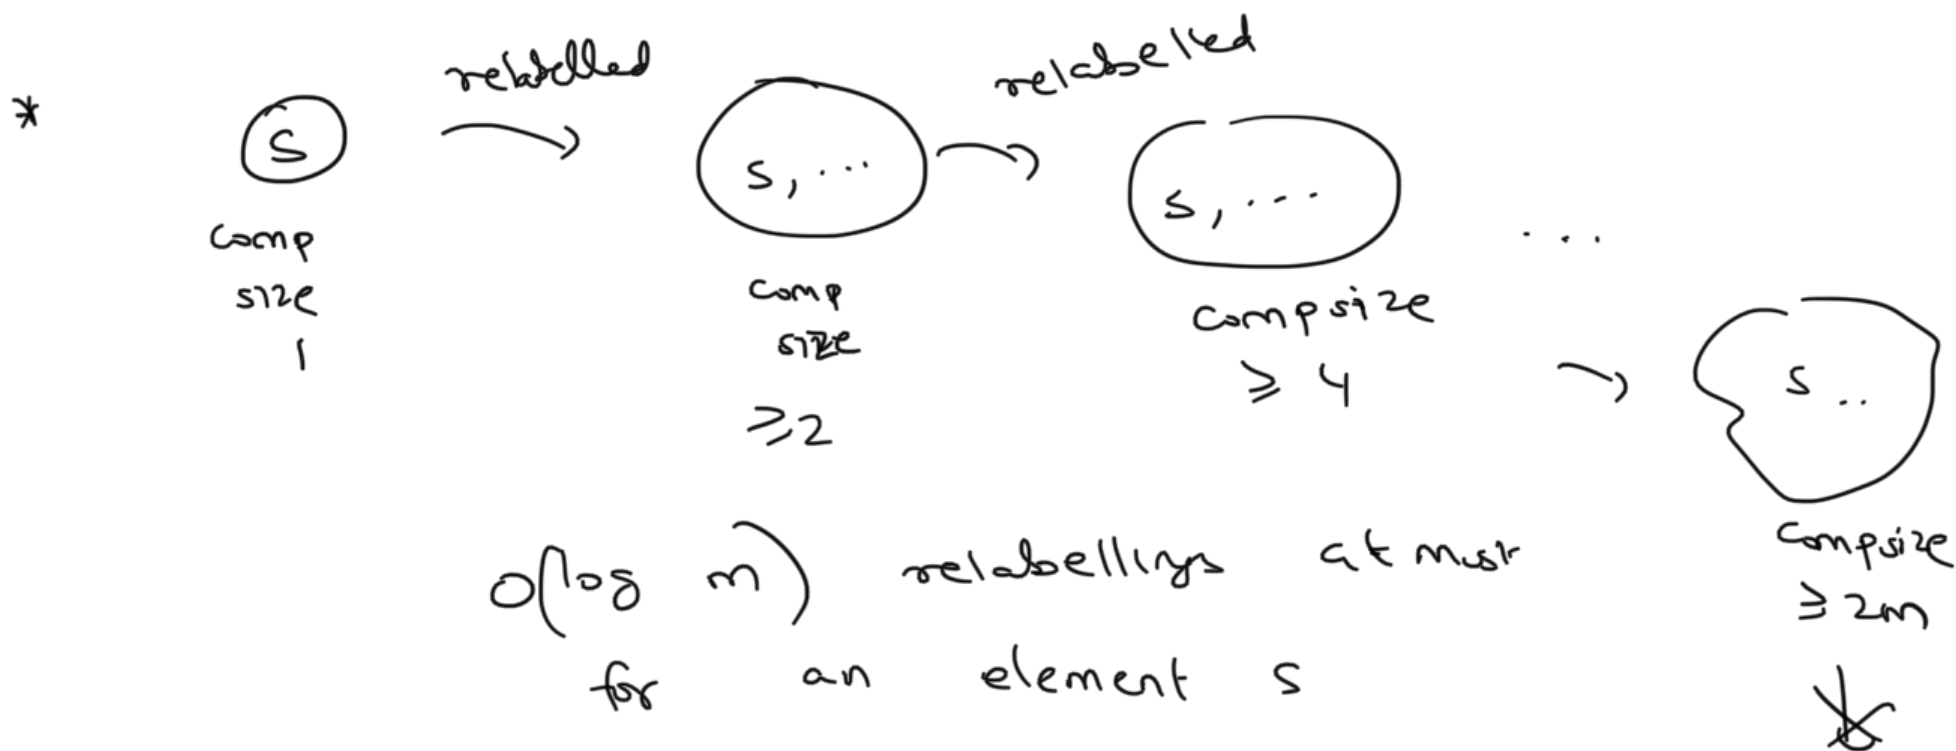 *
relabelled
relabelled
S
s, ...
s, ....
...
s ..
comp
size
1
comp
size
≥2
compsize
≥ 4
compsize
≥ 2m
O(log m) relabellings at most
for an element s